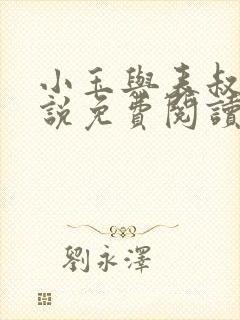 小玉與表叔
說免費閱讀
劉永澤